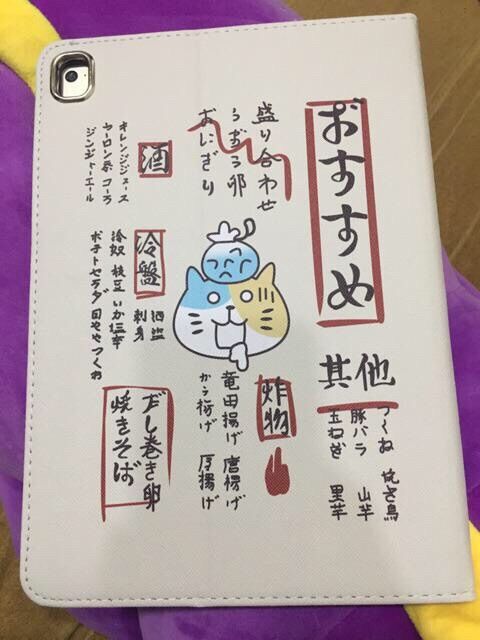 おすすめ
盛り合わせ
うずら卵
おにぎり
酒
オレンジジュース
ウーロン茶 コーラ
ジンジャーエール
其他
つくね 焼き鳥
豚バラ 山芋
玉ねぎ 里芋
炸物
竜田揚げ 唐揚げ
から揚げ 厚揚げ
冷盤
刺身
冷奴 枝豆
ポテトサラダ
だし巻き卵
焼きそば